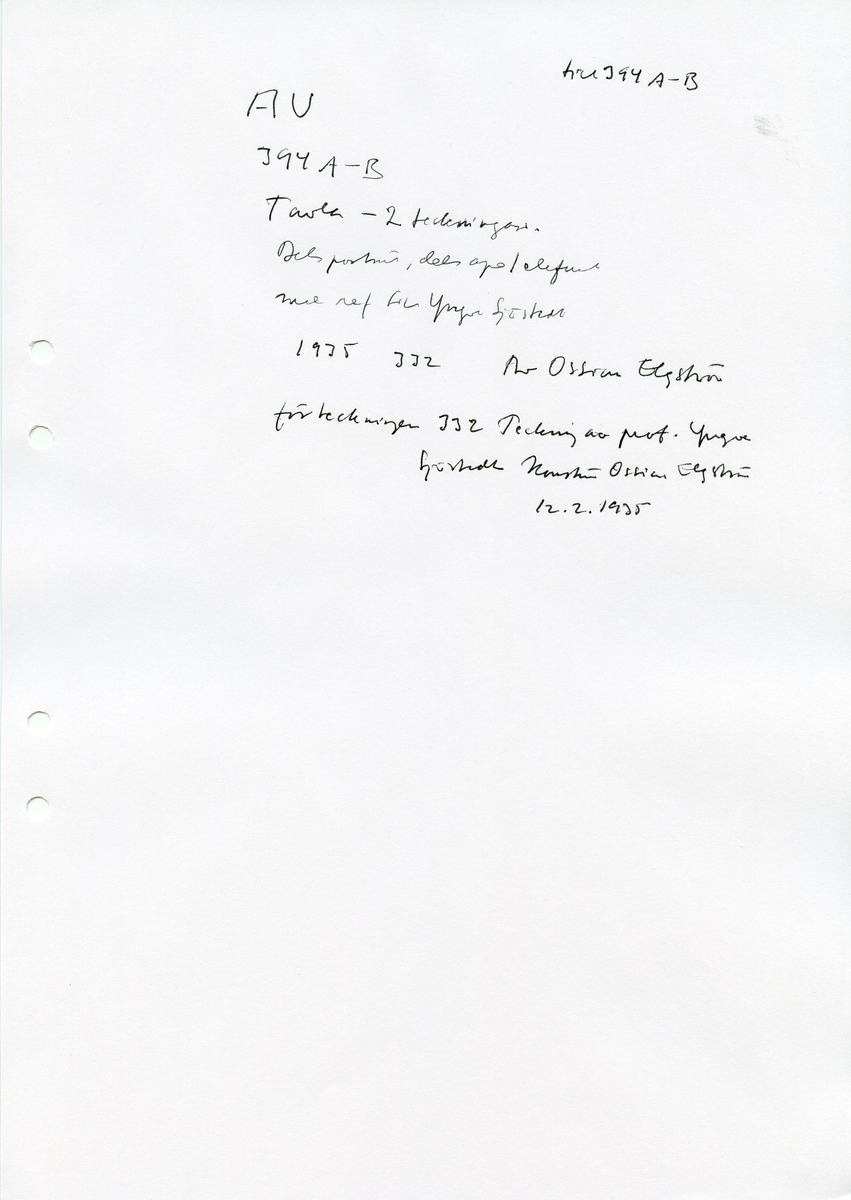 till 394 A-B
AU
394 A-B
Tavla - 2 teckningar.
Dels porträtt, dels apa/elefant
med ref till Yngve Sjöstedt
1935 332 Av Ossian Elgström
förteckningen 332 Teckning av prof. Yngve
Sjöstedt Konstnär Ossian Elgström
12.2.1935